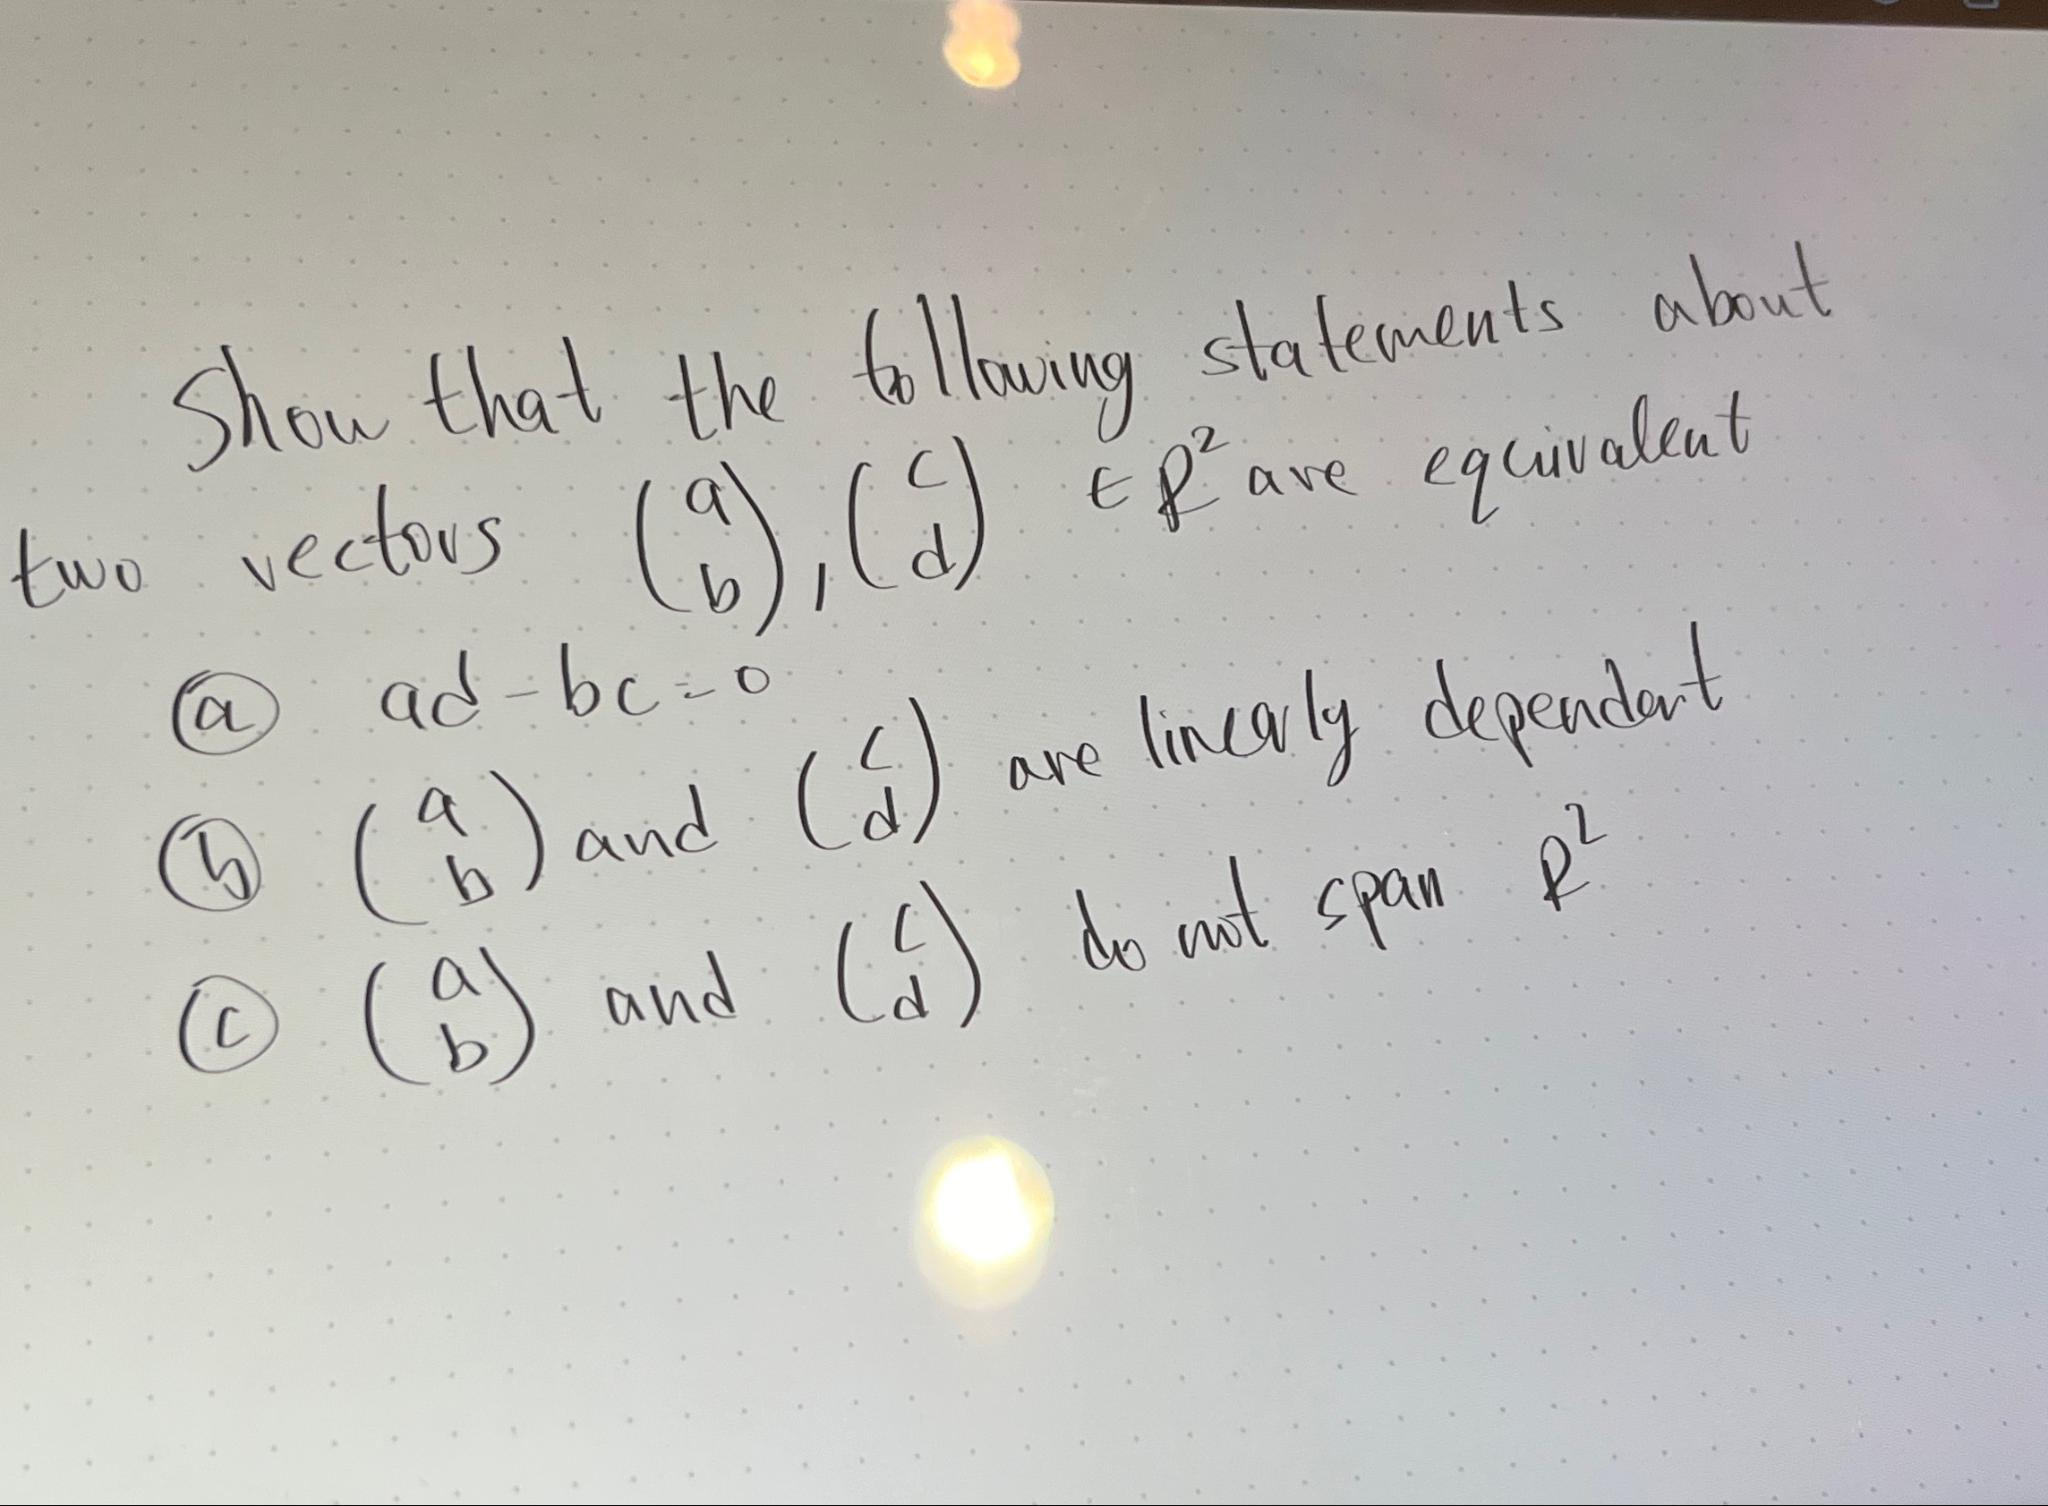 Show that the following statements about
two vectors (a b), (c d) ∈ R² are equivalent
ⓐ ad - bc = 0
ⓑ (a b) and (c d) are linearly dependent
ⓒ (a b) and (c d) do not span R²